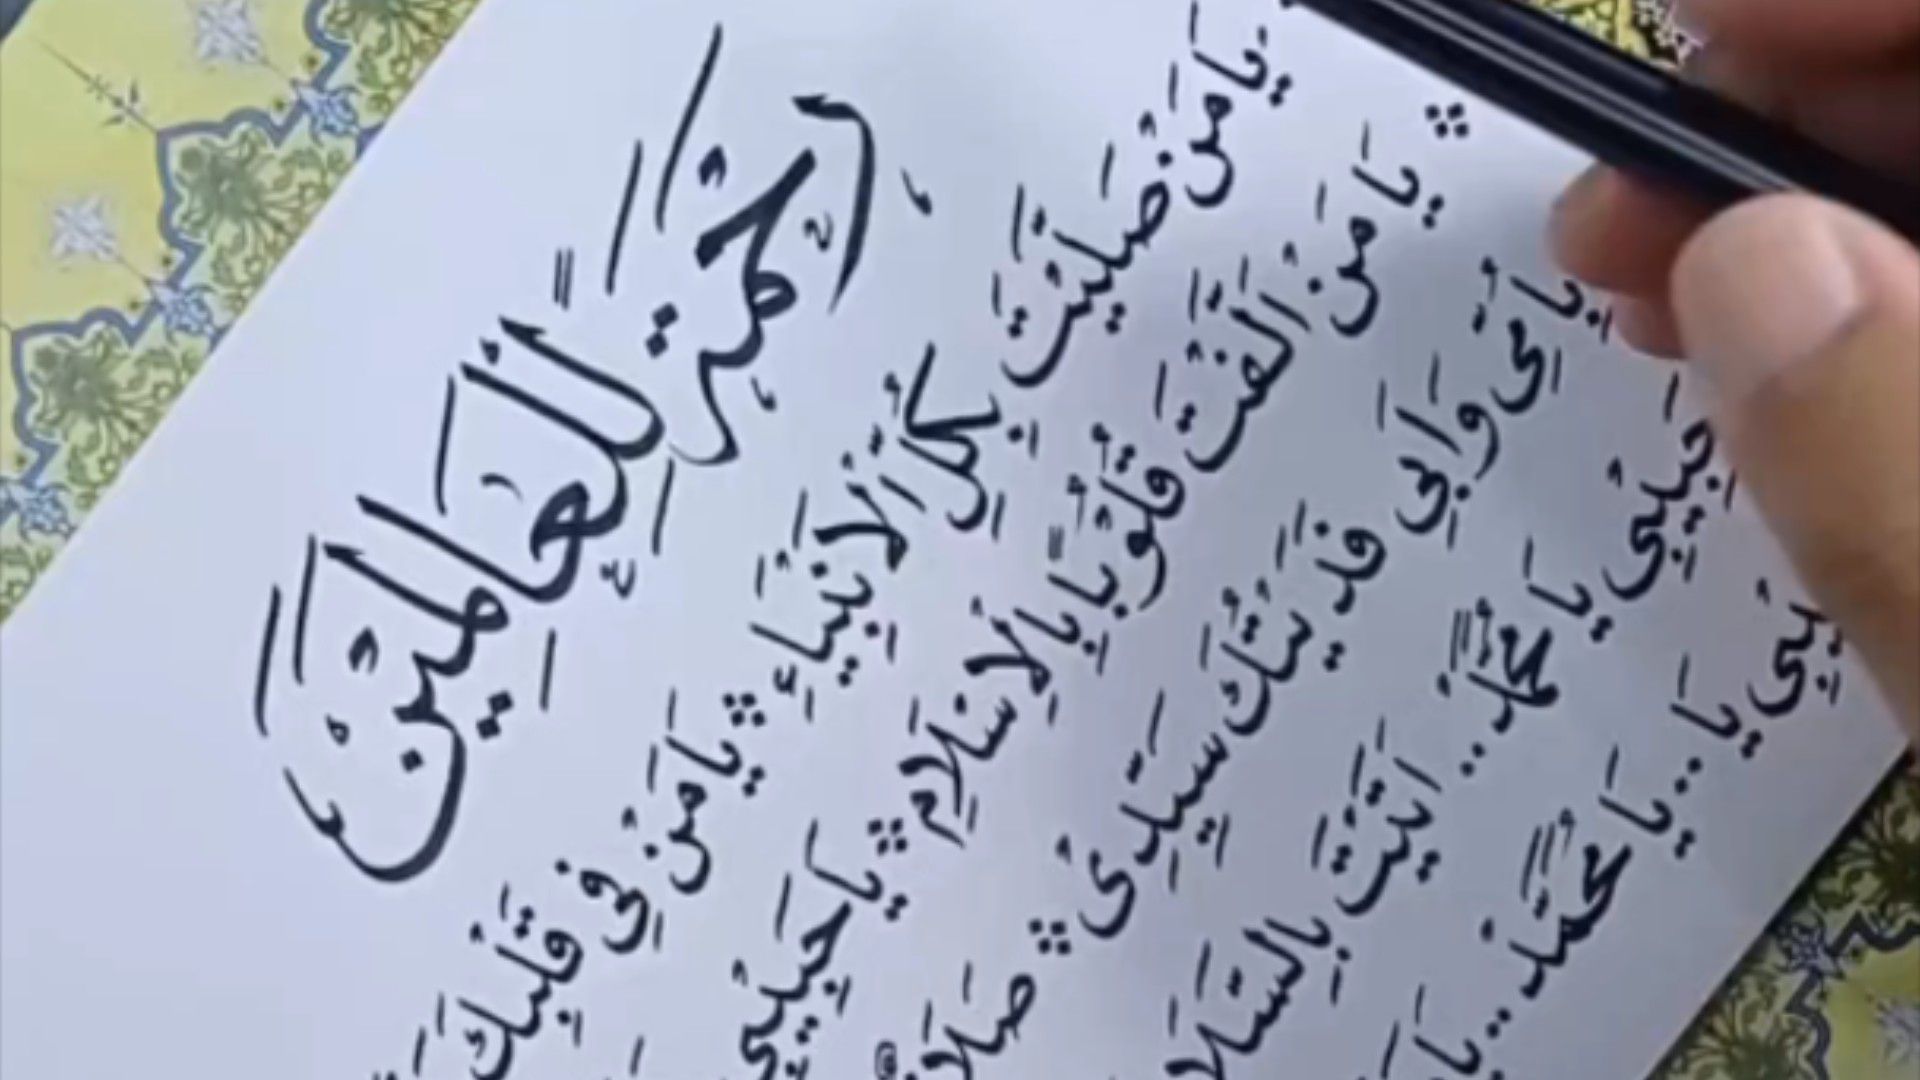 رَحْمَةً لِلْعَالَمِيْنَ
يَا مَنْ صَلَّيْتَ بِكُلِّ الْاَنْبِيَاءِ ۞ يَا مَنْ فِى قَلْبِكَ
يَا مَنْ اَلَّفْتَ قُلُوْبًا بِالْاِسْلَامِ ۞ يَا حَبِيْبِى
بِاُمِّى وَاَبِى فَدَيْتُكَ سَيِّدِىْ ۞ صَلَاةٌ
حَبِيْبِى يَا مُحَمَّدْ.. اَتَيْتَ بِالسَّلَامِ
يَا.. يَا مُحَمَّدْ.. يَا